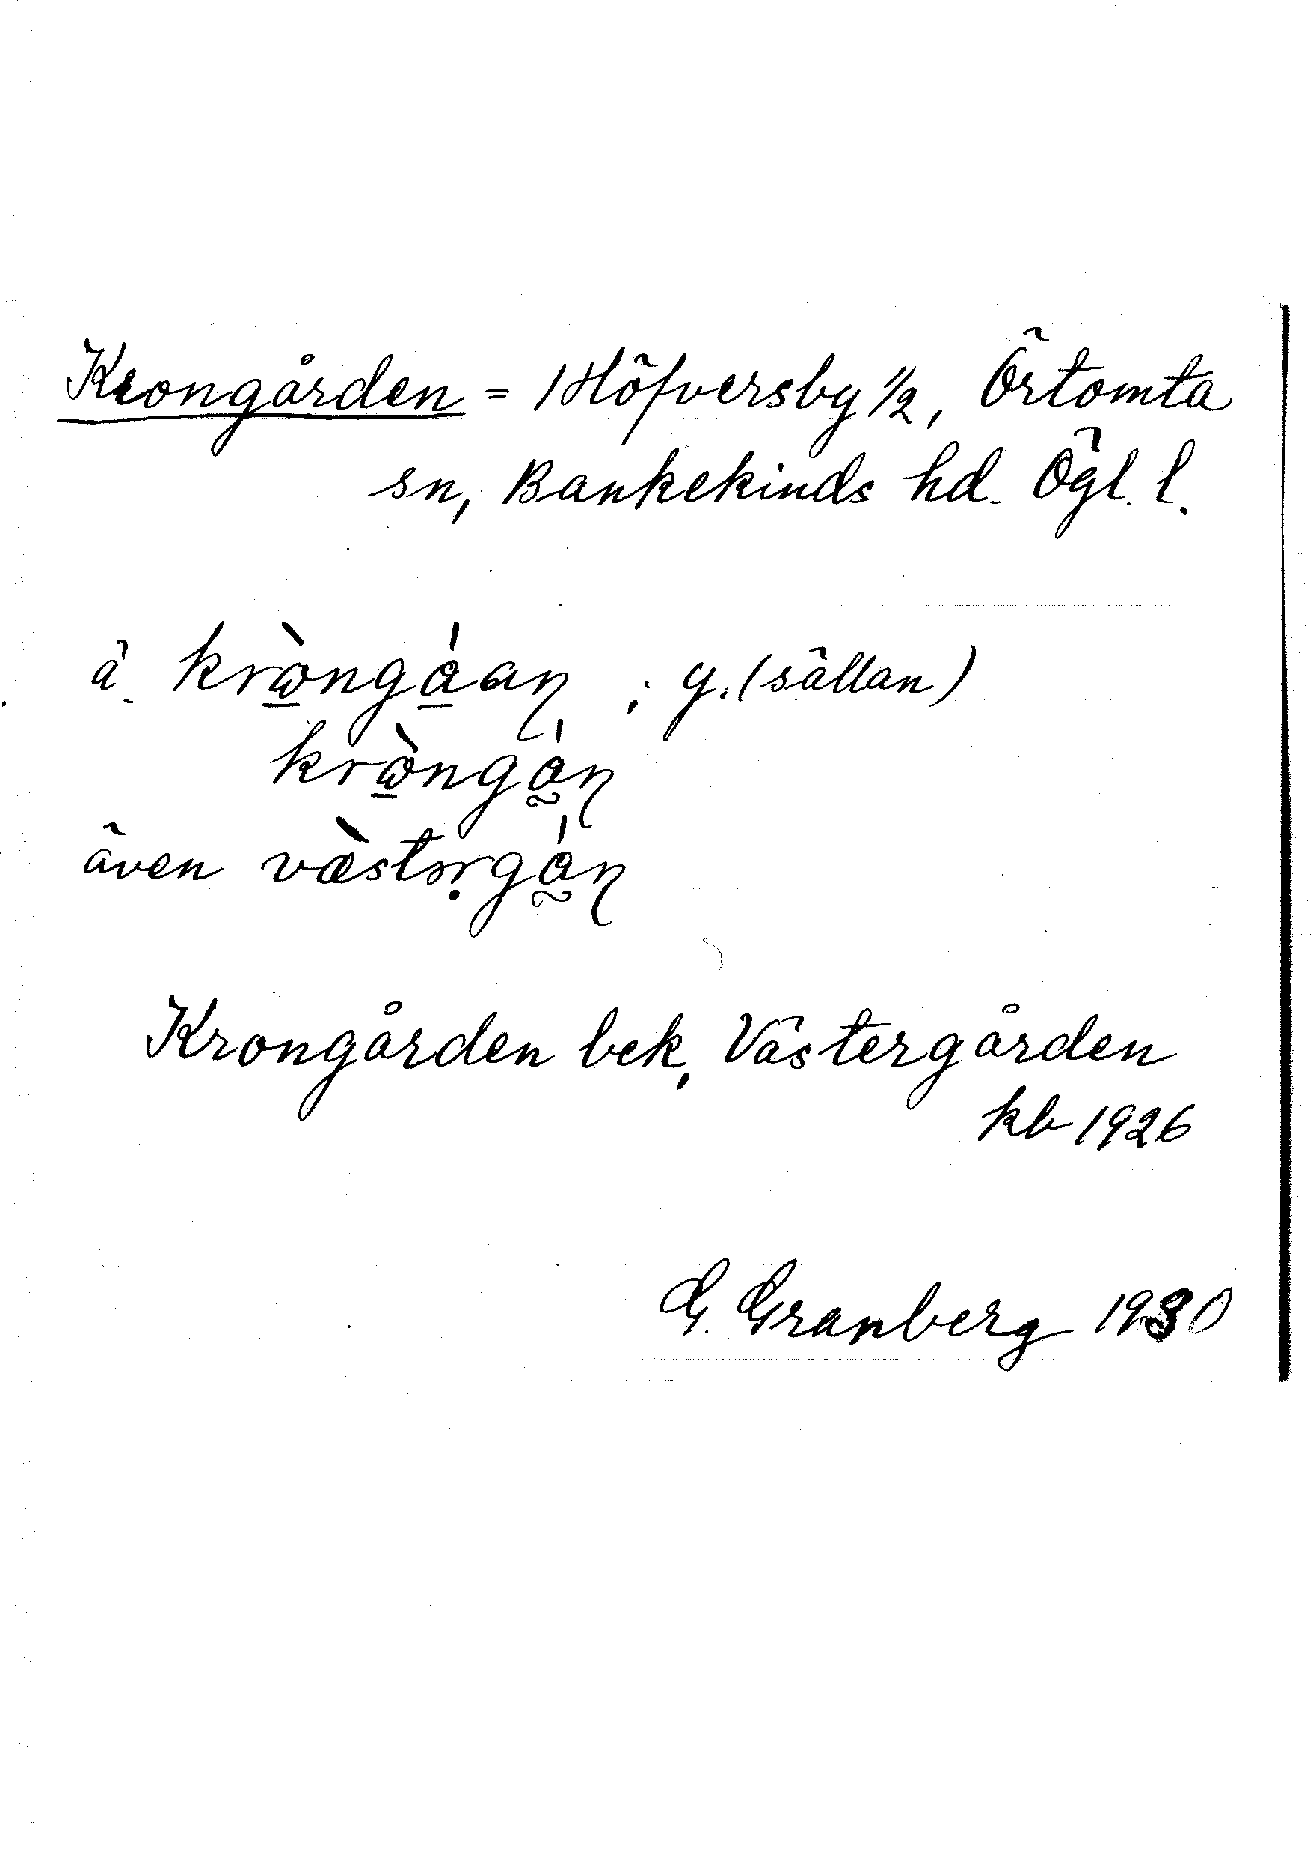 Krongården = Höfversby 1/2, Örtomta
sn, Bankekinds hd. Ögl. l.
ä. krὼ̲ngá̲aɳ ; y. (sällan)
krὼ̲ngá̰ɳ
även væ̀stəṛgá̰ɳ
Krongården bek, Västergården
kb 1926
G. Granberg 1930